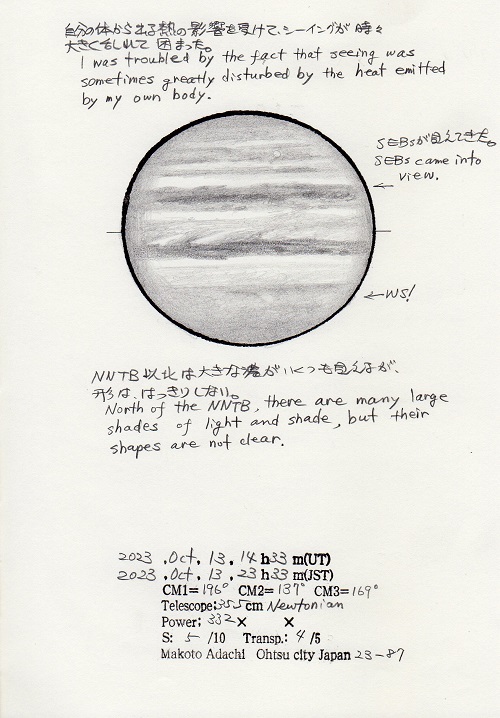 自分の体から出る熱の影響を受けて、シーイングが時々
大きく乱れて困った。
I was troubled by the fact that seeing was
sometimes greatly disturbed by the heat emitted
by my own body.
SEBsが見えてきた。
SEBs came into
view.
WS!
NNTB以北は大きな濃がいくつも見えるが、
形は、はっきりしない。
North of the NNTB, there are many large
shades of light and shade, but their
shapes are not clear.
2023 .Oct. 13. 14 h33 m(UT)
2023 .Oct. 13. 23 h33 m(JST)
CM1= 196° CM2= 137° CM3= 169°
Telescope:35.5cm Newtonian
Power: 332× ×
S: 5 /10 Transp.: 4 /5
Makoto Adachi Ohtsu city Japan 23-87